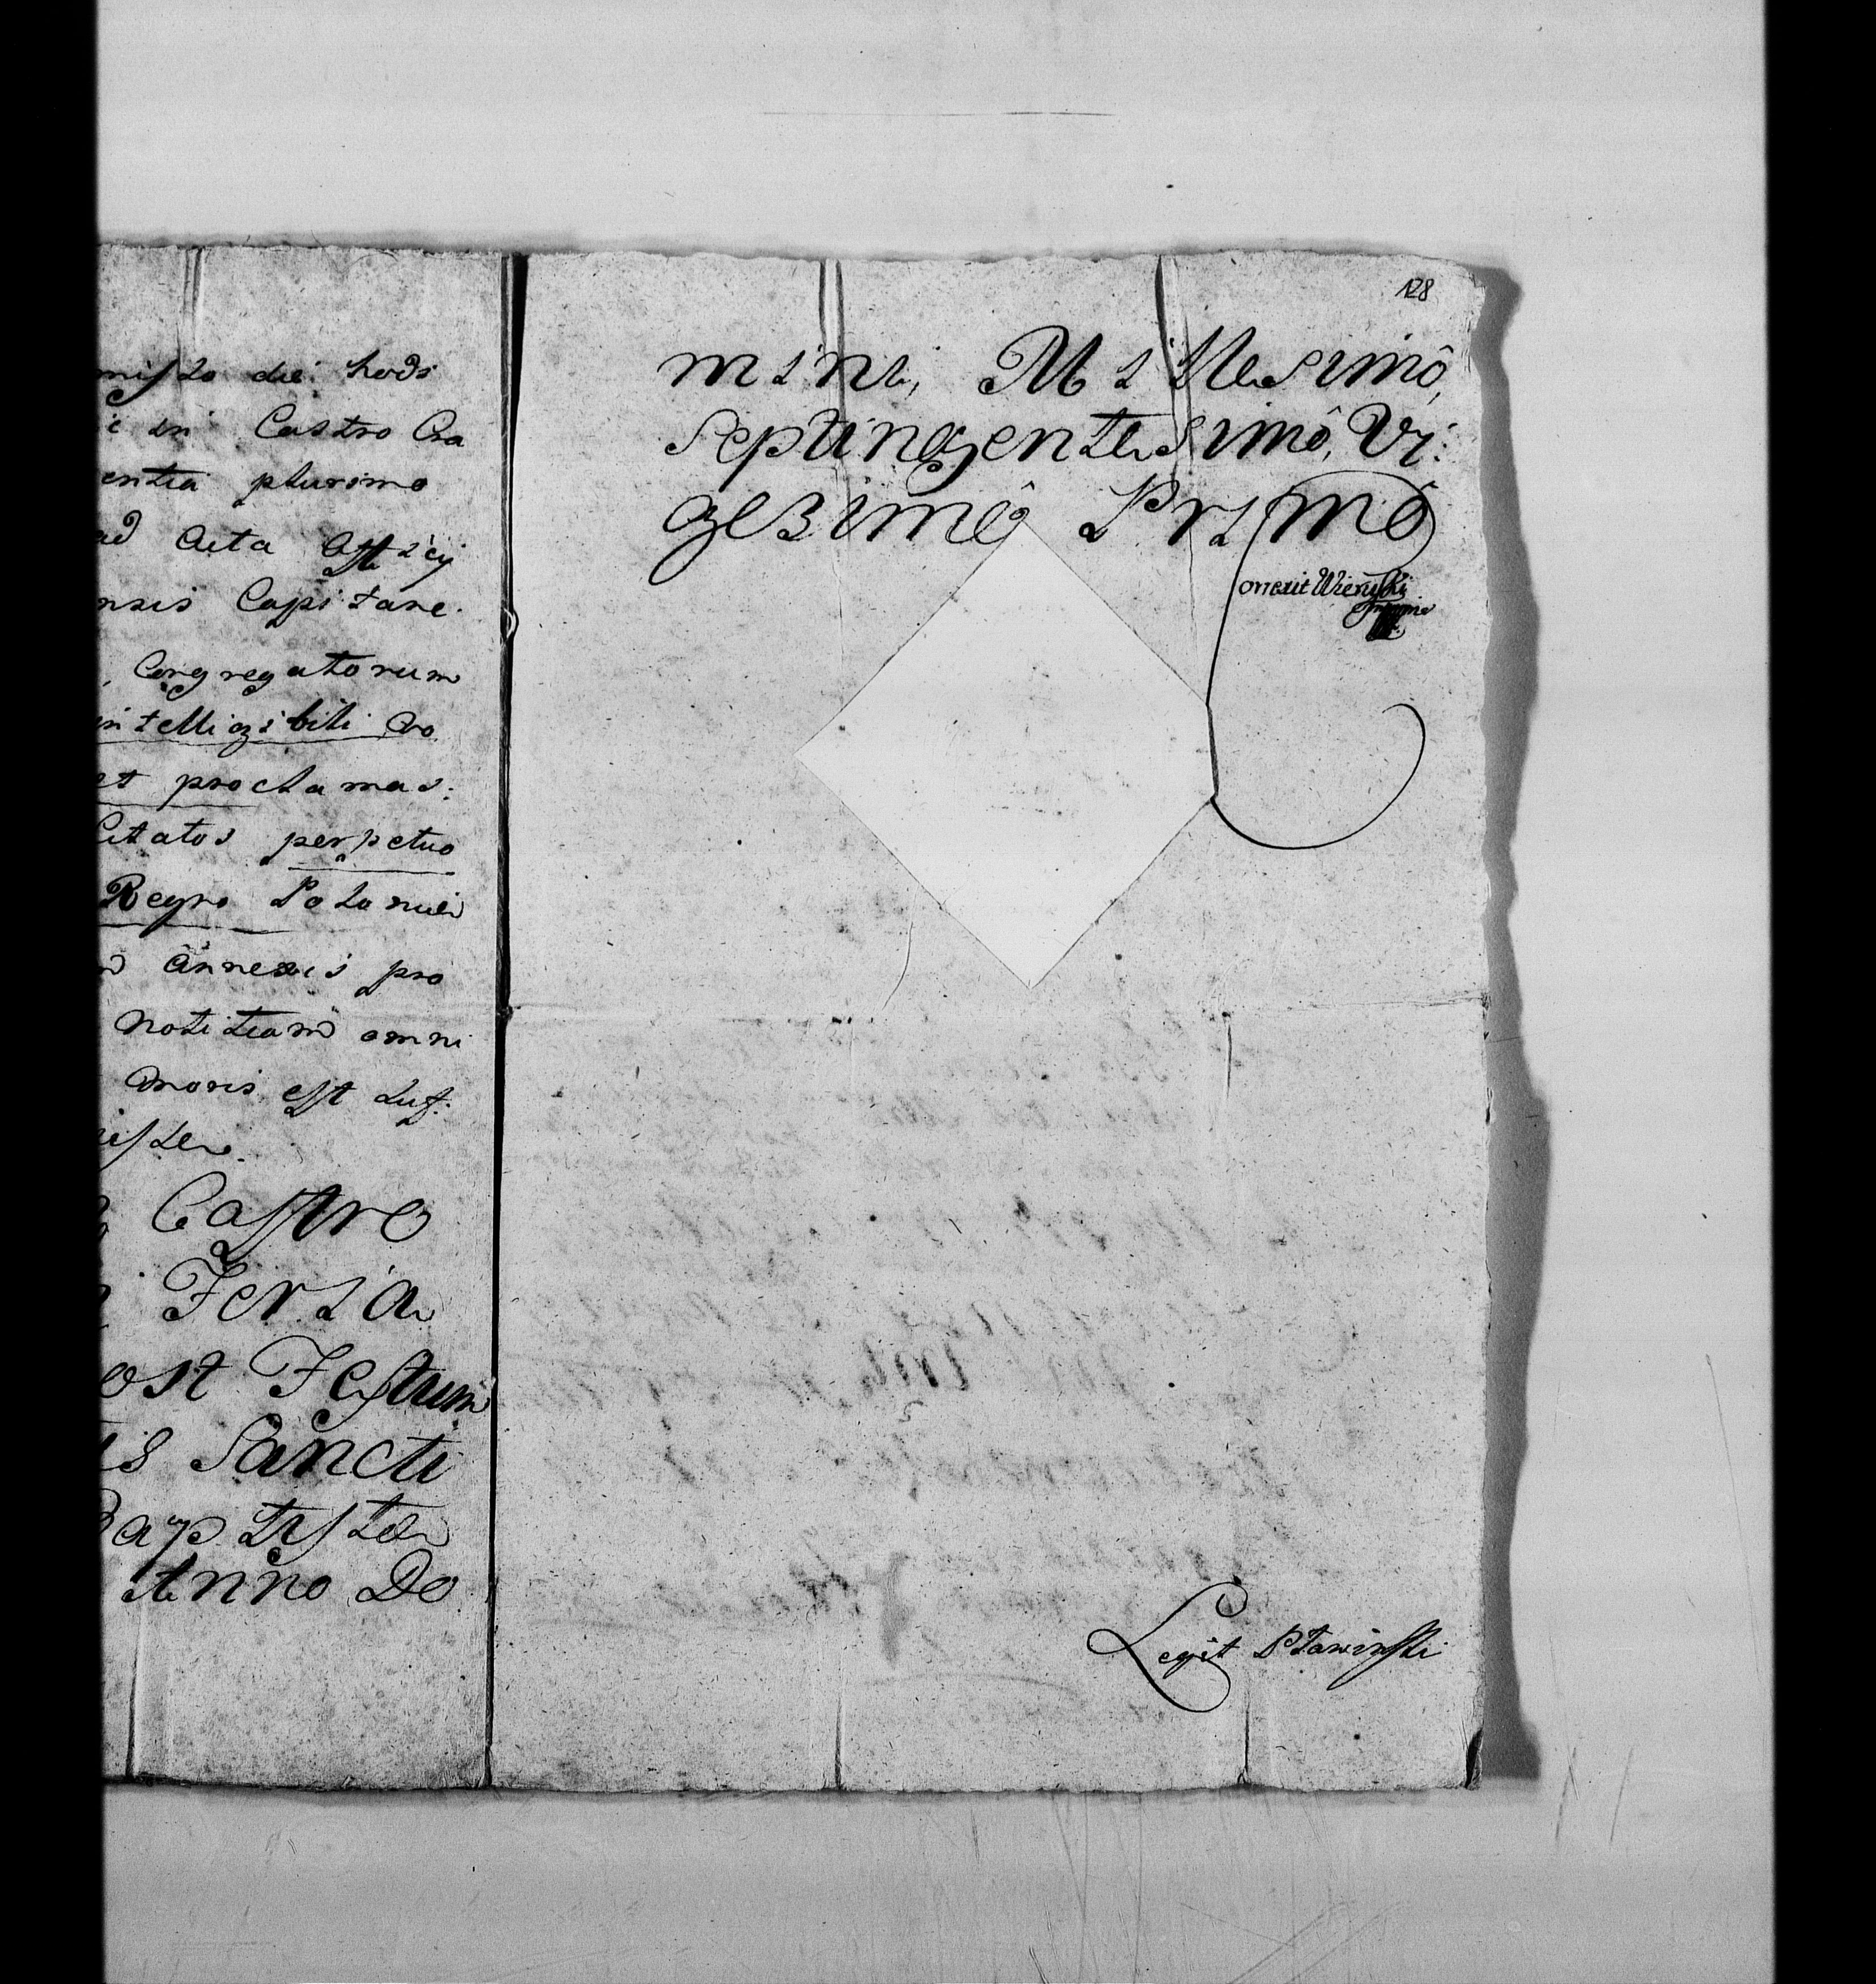 die hodi
in Castro Cra
entia plurimo
ad Acta Officij
nsis Capitane.
, Congregatorum
intelligibili Vo
et proclamav:
Citatos perpetuo
Regno Poloniae
Annexis pro
notitiam omni
moris est

Castro
Feria
ost Festum
is Sancti
Baptistae
Anno Do
128
mini, Millesimô,
Septingentesimô, Vi:
gezimô Primô
orrexit
Legit